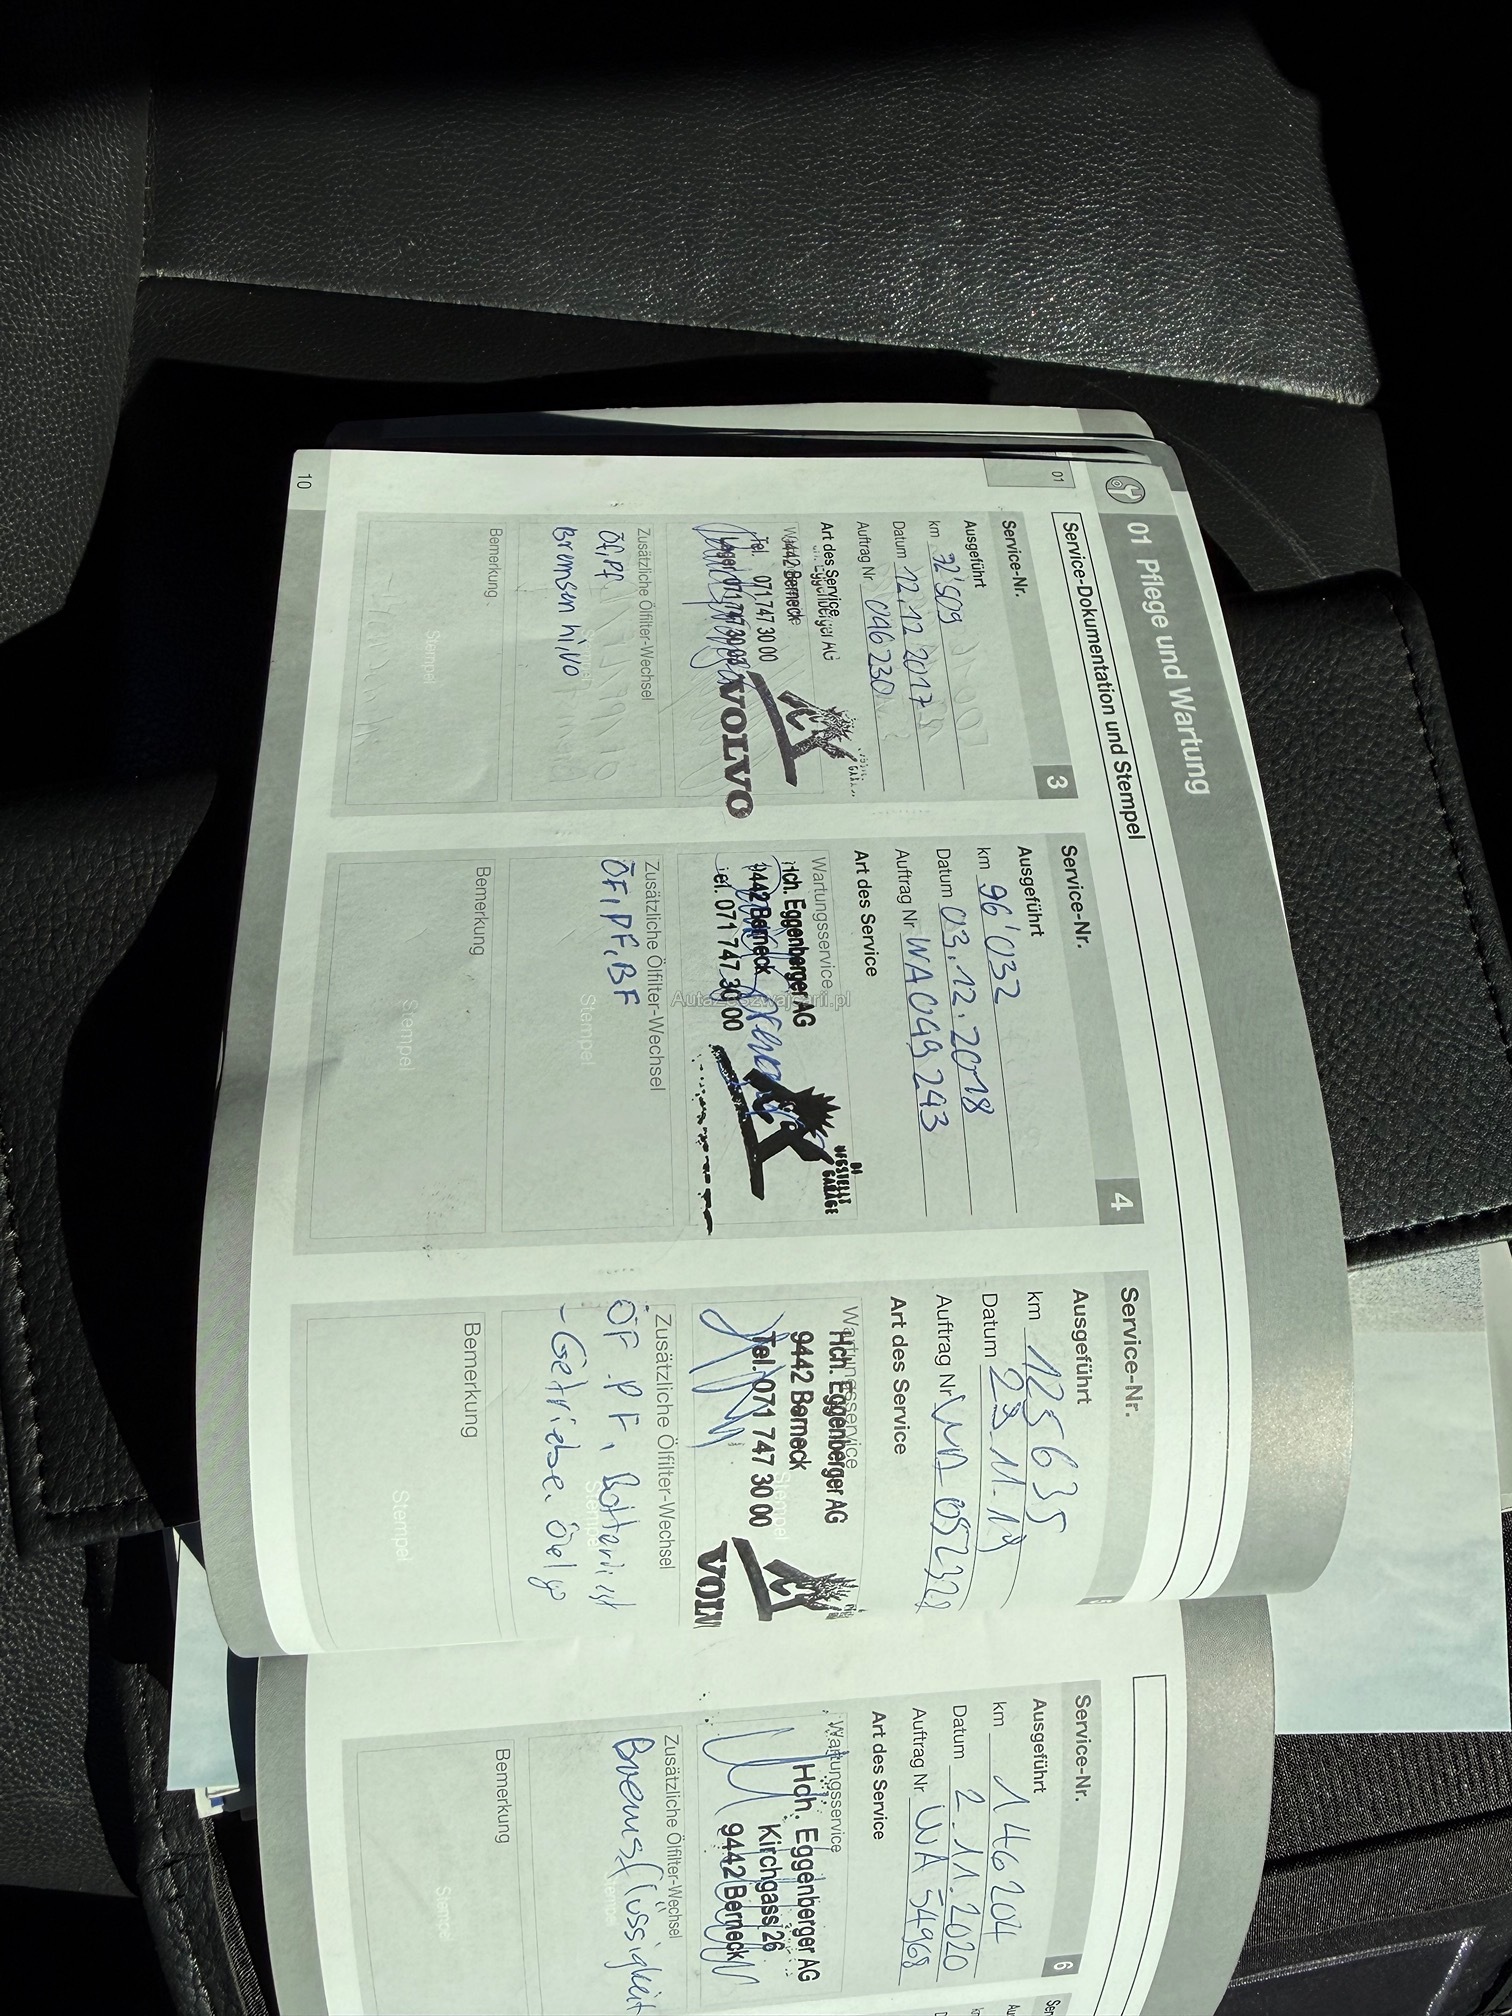 01 Pflege und Wartung
Service-Dokumentation und Stempel
01
Service-Nr.
3
Ausgeführt
km 72'509
Datum 12.12.2017
Auftrag Nr. 046230
Art des Service
Eggenberger AG
9442 Berneck
Tel. 071 747 30 00
071 747 30 00
VOLVO
Zusätzliche Ölfilter-Wechsel
ÖF, PF
Bremsen hi, vo
Bemerkung
Stempel
Service-Nr.
4
Ausgeführt
km 96'032
Datum 03.12.2018
Auftrag Nr WA049243
Art des Service
Wartungsservice
Hch. Eggenberger AG
9442 Berneck
Tel. 071 747 30 00
GARAGE
Zusätzliche Ölfilter-Wechsel
ÖF, PF, BF
Stempel
Bemerkung
Stempel
Service-Nr.
5
Ausgeführt
km 125635
Datum 29.11.19
Auftrag Nr
Art des Service
Wartungsservice
Hch. Eggenberger AG
9442 Berneck
Stempel
Tel. 071 747 30 00
VOLV
Zusätzliche Ölfilter-Wechsel
ÖF, PF,
Stempel
Bemerkung
Stempel
10
Service-Nr.
6
Ausgeführt
km 146204
Datum 2.11.2020
Auftrag Nr. WA 54968
Art des Service
Wartungsservice
Hch. Eggenberger AG
Kirchgass 26
9442 Berneck
Zusätzliche Ölfilter-Wechsel
Bremsflüssigkeit
Bemerkung
Stempel
AutazeSzwajcarii.pl